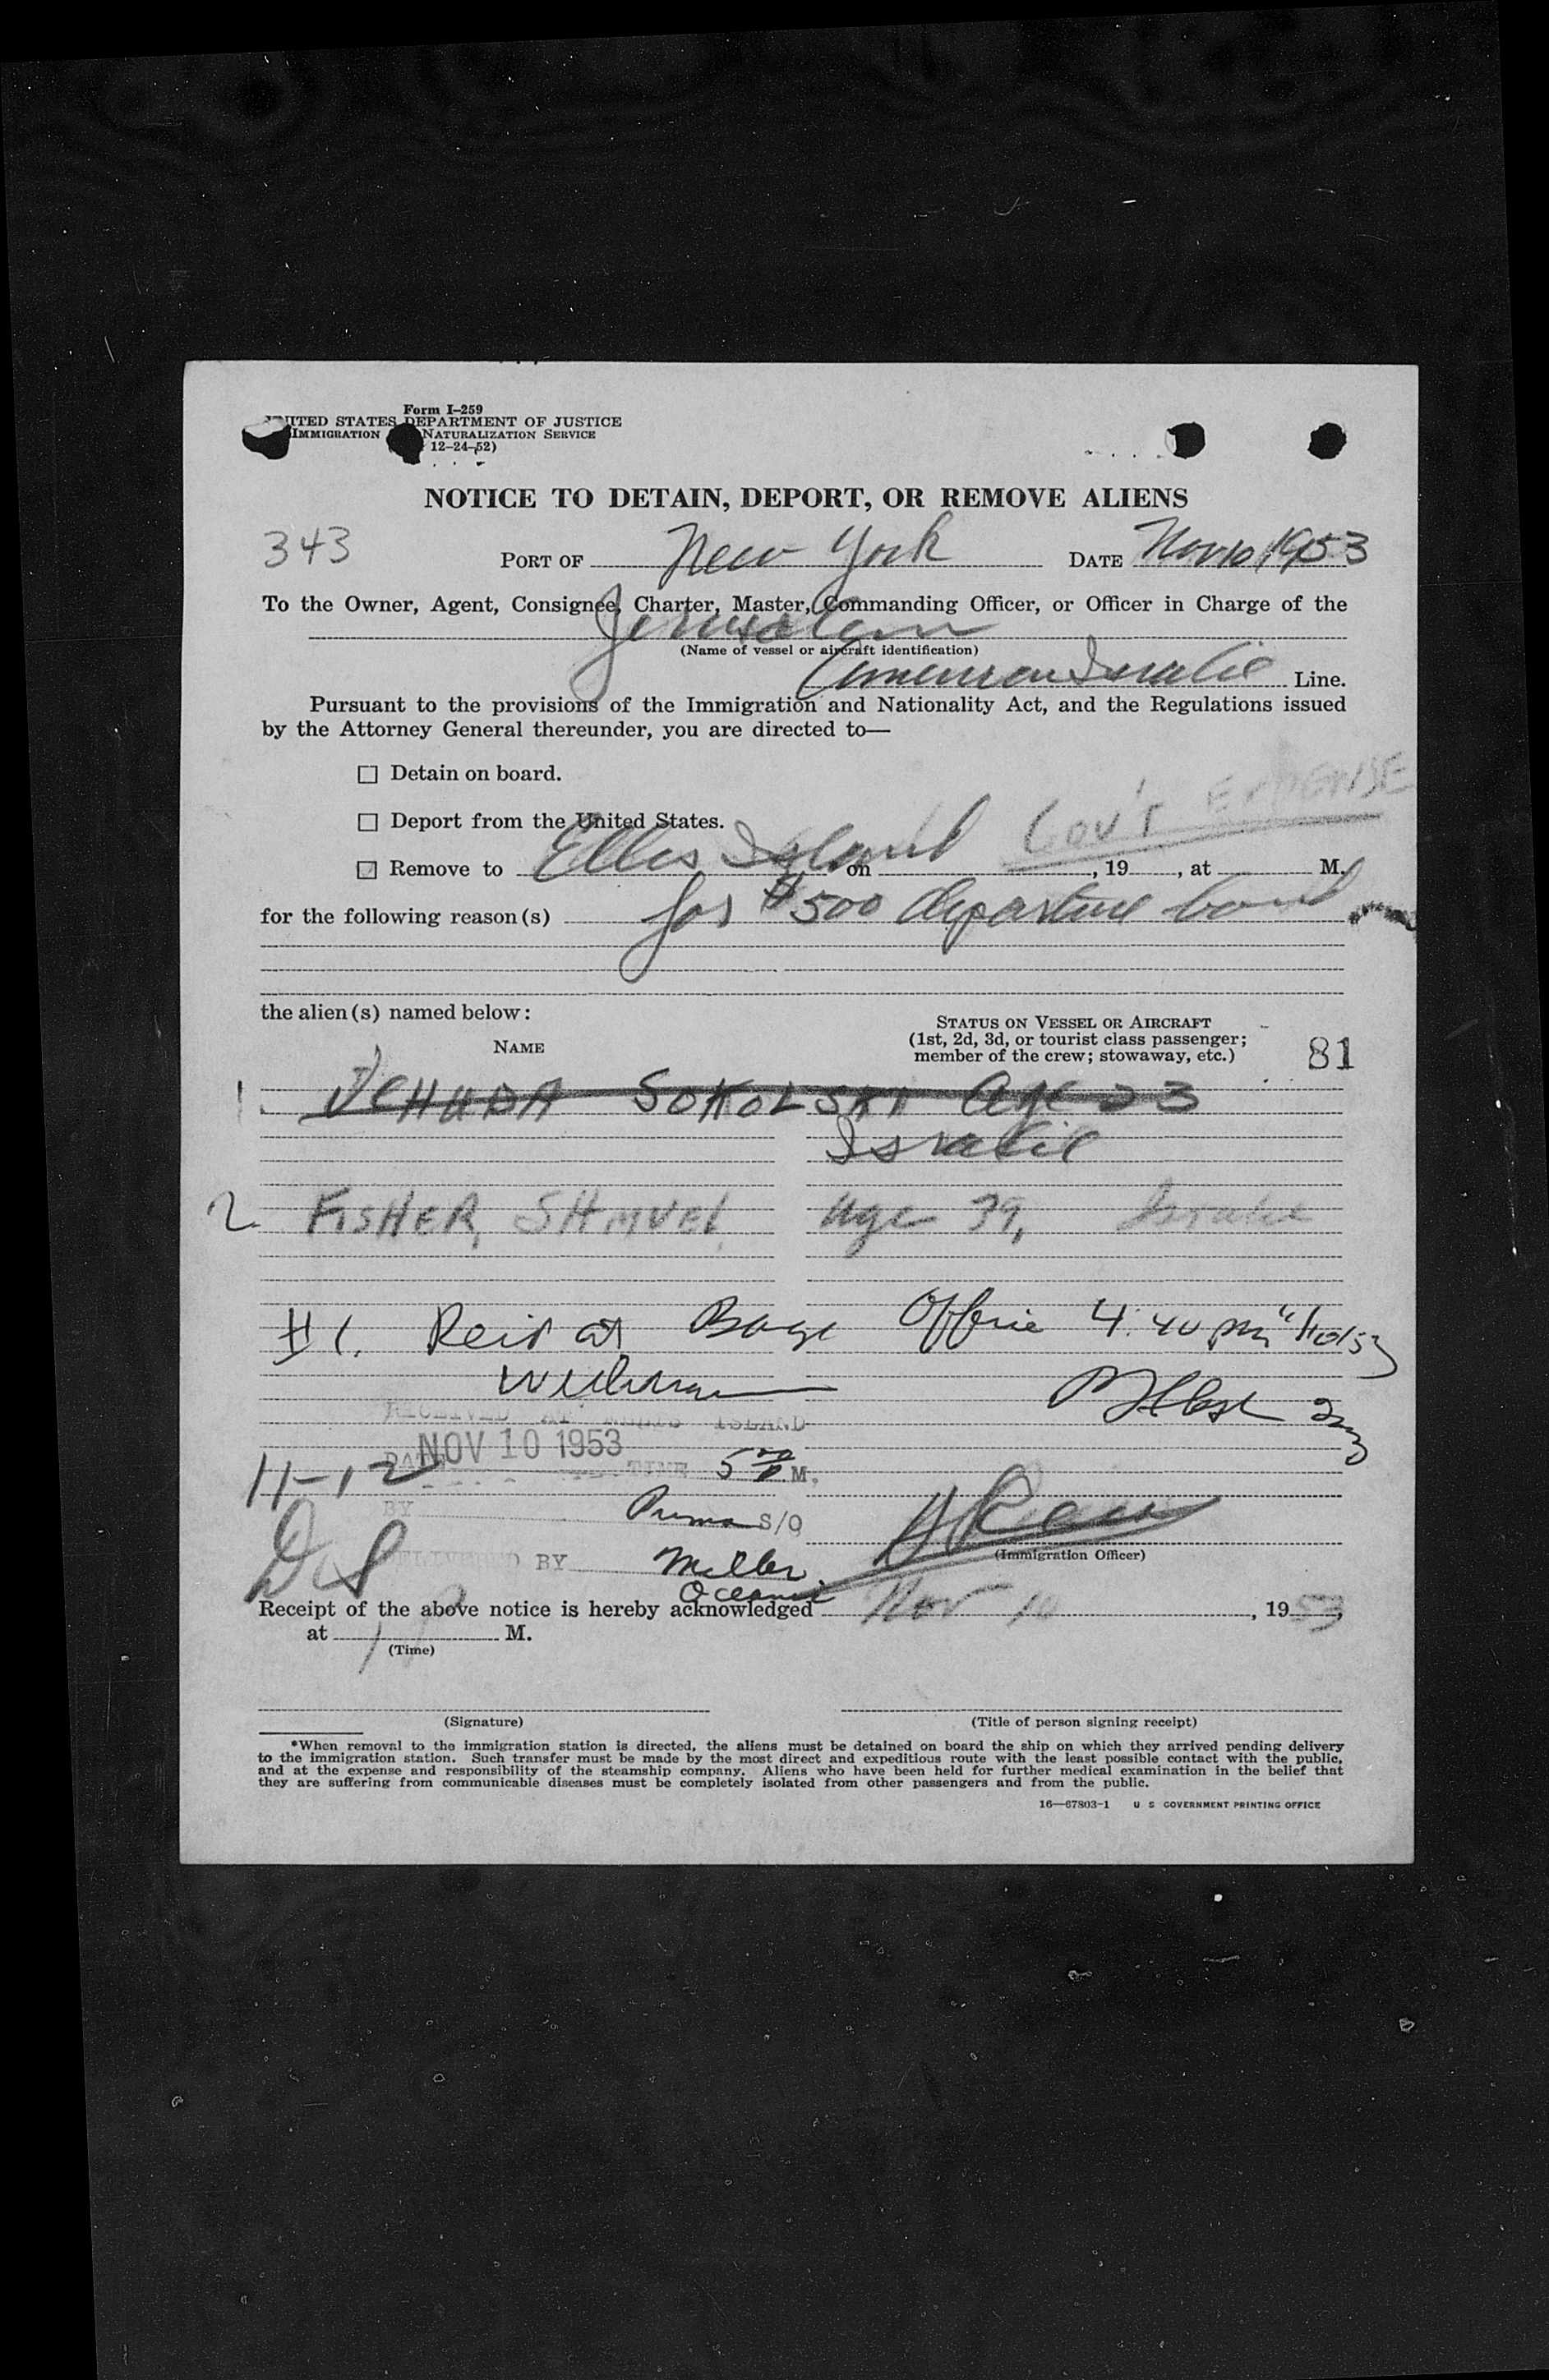 Form I-259
UNITED STATES DEPARTMENT OF JUSTICE
IMMIGRATION NATURALIZATION SERVICE
12-24-52)
NOTICE TO DETAIN, DEPORT, OR REMOVE ALIENS
343 PORT OF New York DATE Nov 10, 1953
To the Owner, Agent, Consignee, Charter, Master, Commanding Officer, or Officer in Charge of the
Jerusalem
(Name of vessel or aircraft identification)
American Israeli Line.
Pursuant to the provisions of the Immigration and Nationality Act, and the Regulations issued
by the Attorney General thereunder, you are directed to—
☐ Detain on board.
GOV'T EXPENSE
☐ Deport from the United States.
☐ Remove to Ellis Island on , 19 , at M.
for the following reason(s) for $500 departure bond
the alien(s) named below:
STATUS ON VESSEL OR AIRCRAFT
(1st, 2d, 3d, or tourist class passenger;
member of the crew; stowaway, etc.)
NAME
81
1. SOKOLSKI age 23
Israeli
2. FISHER, SHMUEL age 39, Israeli
#1. at Office 4:40 pm
RECEIVED AT ELLIS ISLAND
DATE NOV 10 1953 TIME 5 M.
11-12
BY S/O
(Immigration Officer)
DELIVERED BY Miller
Oceanic
Receipt of the above notice is hereby acknowledged Nov 10, 1953,
at M.
(Time)
(Signature) (Title of person signing receipt)
*When removal to the immigration station is directed, the aliens must be detained on board the ship on which they arrived pending delivery
to the immigration station. Such transfer must be made by the most direct and expeditious route with the least possible contact with the public,
and at the expense and responsibility of the steamship company. Aliens who have been held for further medical examination in the belief that
they are suffering from communicable diseases must be completely isolated from other passengers and from the public.
16—67803-1 U S GOVERNMENT PRINTING OFFICE